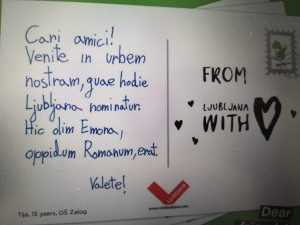 Cari amici!
Venite in urbem
nostram, quae hodie
Ljubljana nominatur.
Hic olim Emona,
oppidum Romanum, erat.
Valete!
FROM
LJUBLJANA
WITH
Ljubljana
www.visitljubljana.com
Tija, 13 years, OŠ Zalog
Dear